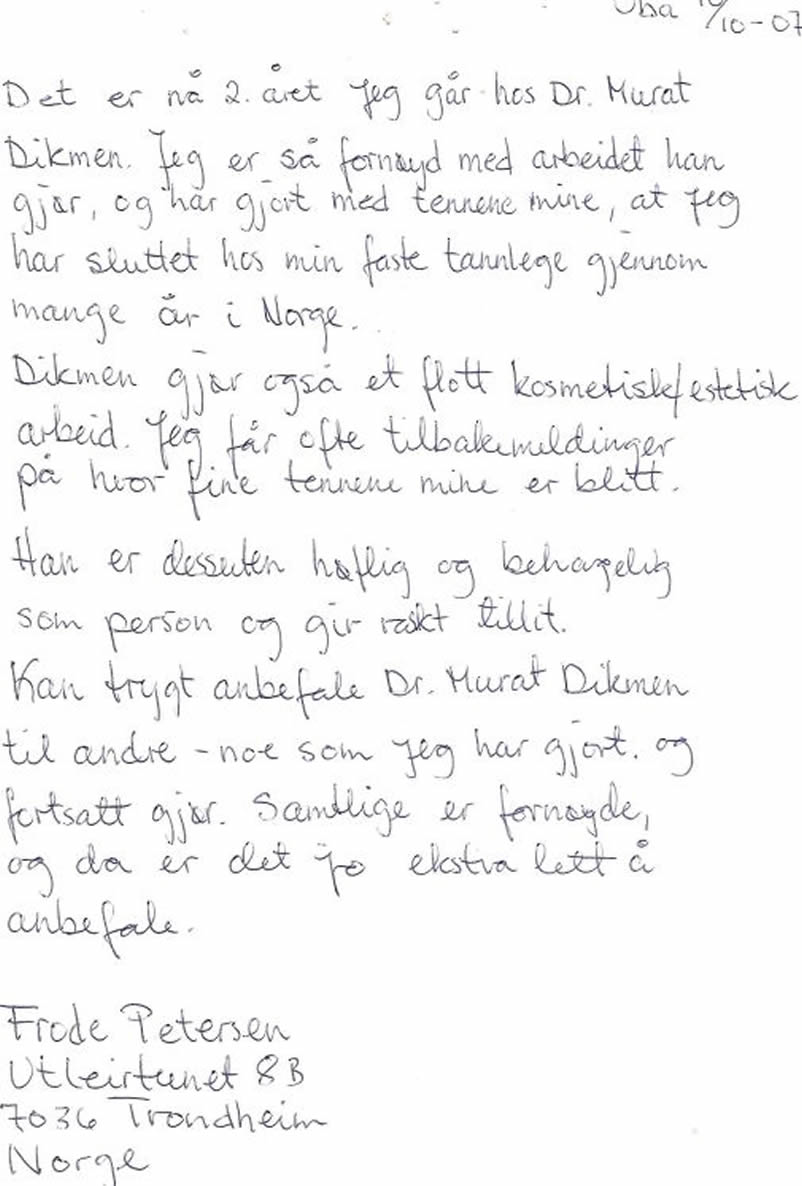 Oba /10-07
Det er nå 2. året jeg går hos Dr. Murat
Dikmen. Jeg er så fornøyd med arbeidet han
gjør, og har gjort med tennene mine, at jeg
har sluttet hos min faste tannlege gjennom
mange år i Norge.
Dikmen gjør også et flott kosmetisk/estetisk
arbeid. Jeg får ofte tilbakemeldinger
på hvor fine tennene mine er blitt.
Han er dessuten høflig og behagelig
som person og gir raskt tillit.
Kan trygt anbefale Dr. Murat Dikmen
til andre - noe som jeg har gjort. og
fortsatt gjør. Samtlige er fornøyde,
og da er det jo ekstra lett å
anbefale.
Frode Petersen
Utleirtunet 8B
7036 Trondheim
Norge